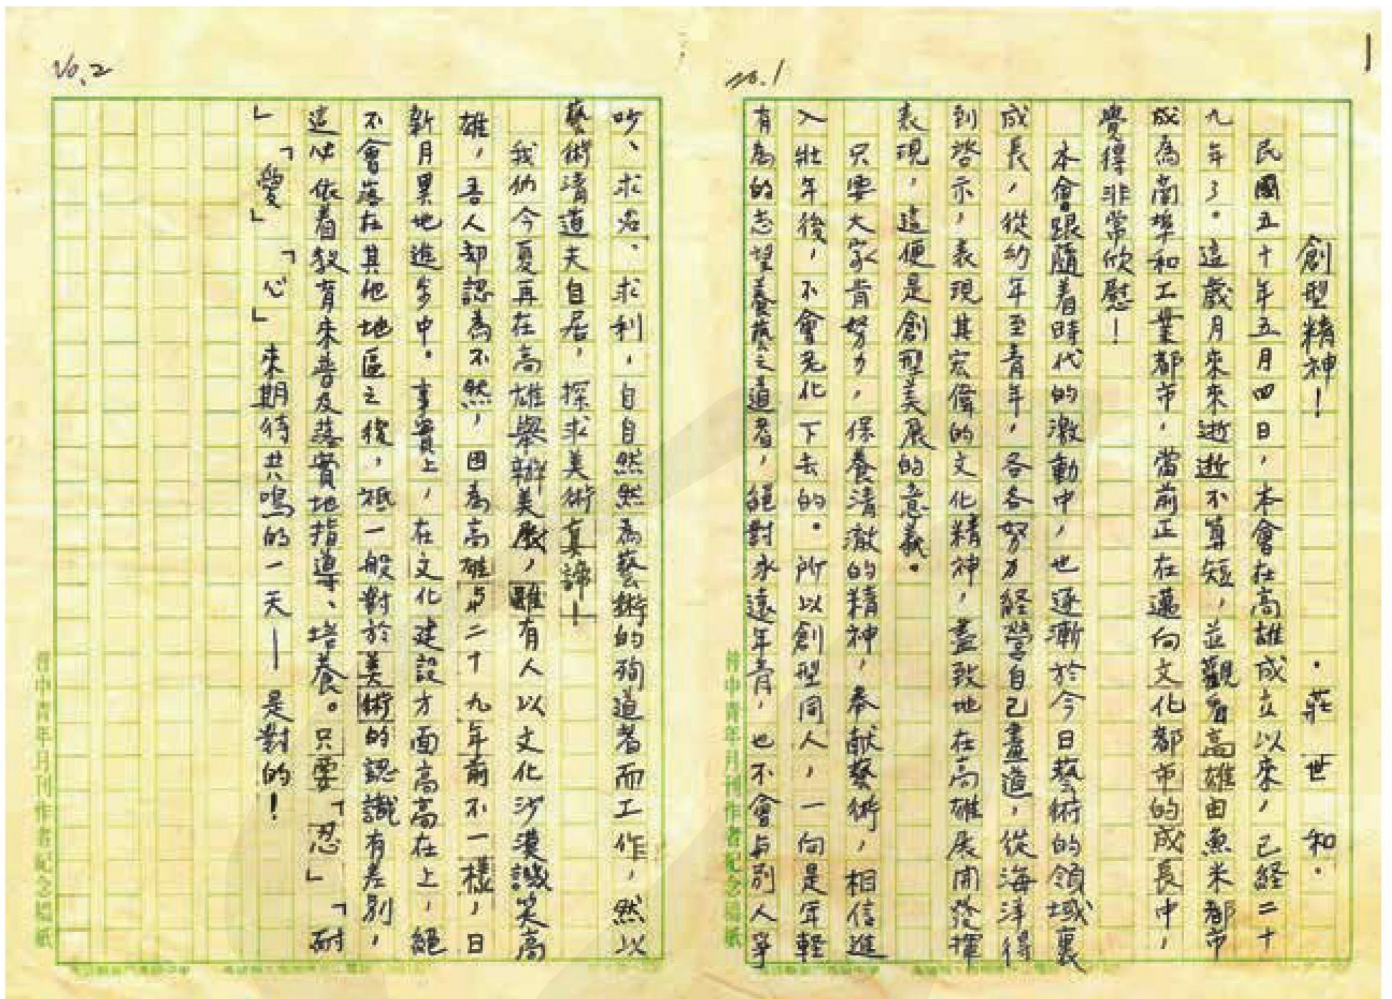 No.1
創型精神！
．莊世和．
民國五十年五月四日，本會在高雄成立以來，已經二十
九年了。這歲月來來逝逝不算短，並觀看高雄由魚米都市
成為商埠和工業都市，當前正在邁向文化都市的成長中，
覺得非常欣慰！
本會跟隨着時代的激動中，也逐漸於今日藝術的領域裏
成長，從幼年至青年，各各努力経營自己畫道，從海洋得
到啓示，表現其宏偉的文化精神，盡致地在高雄展開發揮
表現，這便是創型美展的意義。
只要大家肯努力，保養清澈的精神，奉献藝術，相信進
入壯年後，不會老化下去的。所以創型同人，一向是年輕
有為的志望養藝之道者，絕對永遠年青，也不會与別人爭
No.2
吵、求名、求利，自自然然為藝術的殉道者而工作，然以
藝術清道夫自居，探求美術真諦！
我們今夏再在高雄舉辦美展，雖有人以文化沙漠譏笑高
雄，吾人却認為不然，因為高雄与二十九年前不一樣，日
新月異地進步中。事實上，在文化建設方面高高在上，絕
不會落在其他地區之後，祗一般對於美術的認識有差別，
這必依着教育來普及落實地指導、培養。只要「忍」「耐
」「愛」「心」來期待共鳴的一天──是對的！